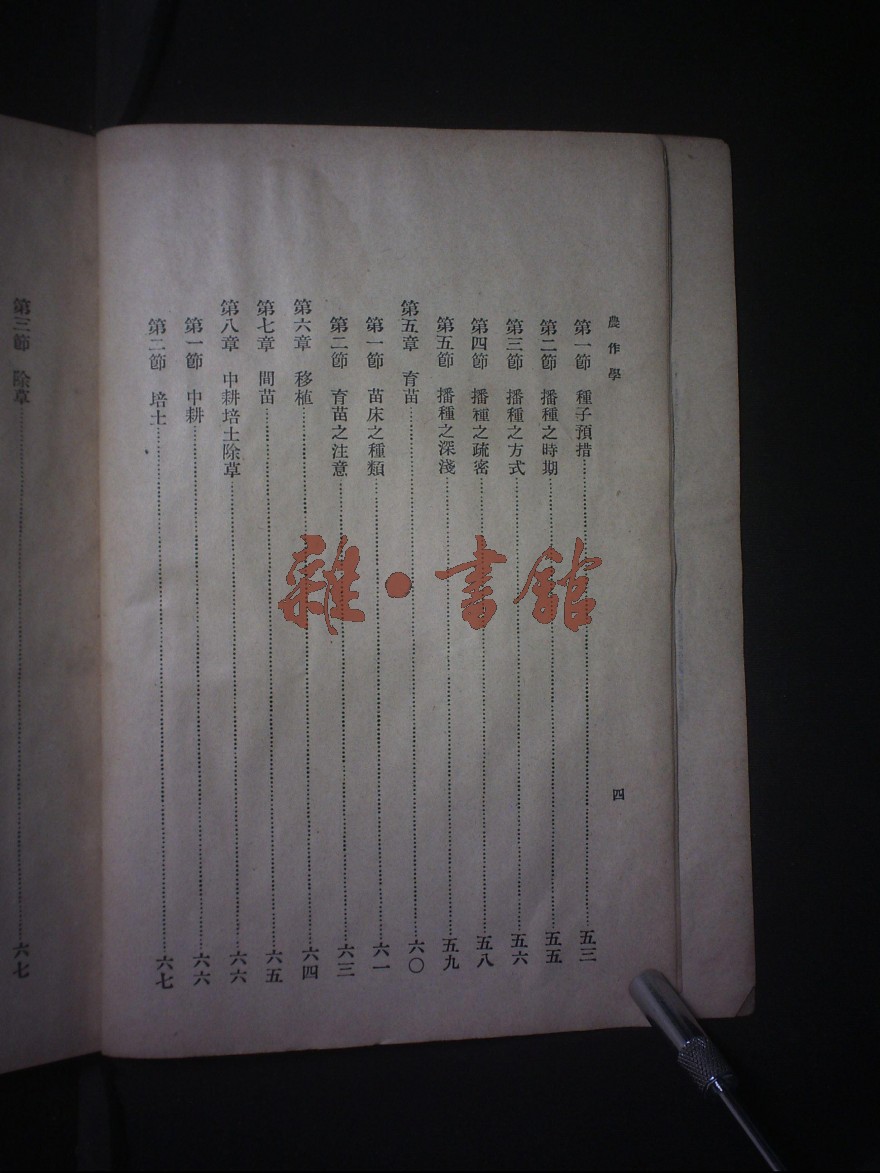 農作學
四
第一節　種子預措……五三
第二節　播種之時期……五五
第三節　播種之方式……五六
第四節　播種之疏密……五八
第五節　播種之深淺……五九
第五章　育苗……六〇
第一節　苗床之種類……六一
第二節　育苗之注意……六三
第六章　移植……六四
第七章　間苗……六五
第八章　中耕培土除草……六六
第一節　中耕……六六
第二節　培土……六七
第三節　除草……六七
雜·書館